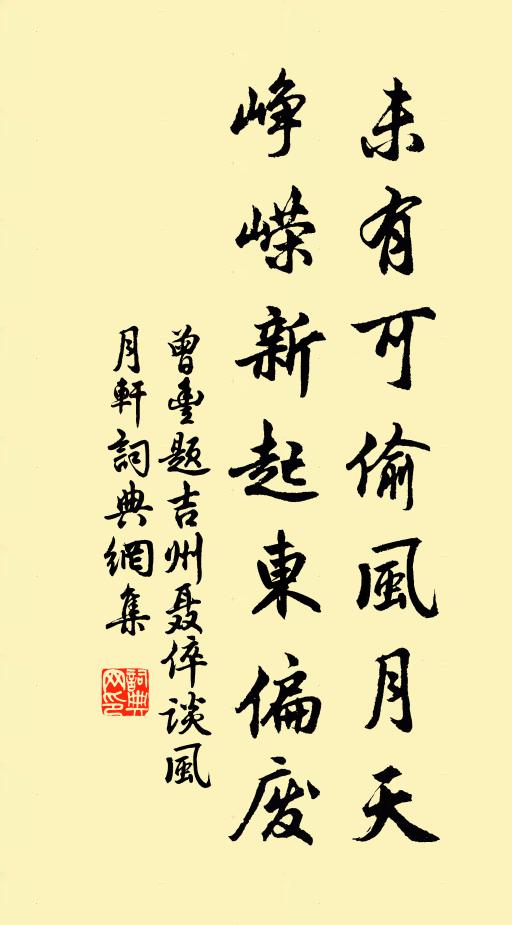 未有可偷風月天
崢嶸新起東偏废
曾豐题吉州聂倅談風
月軒詞典網集
詞典网印